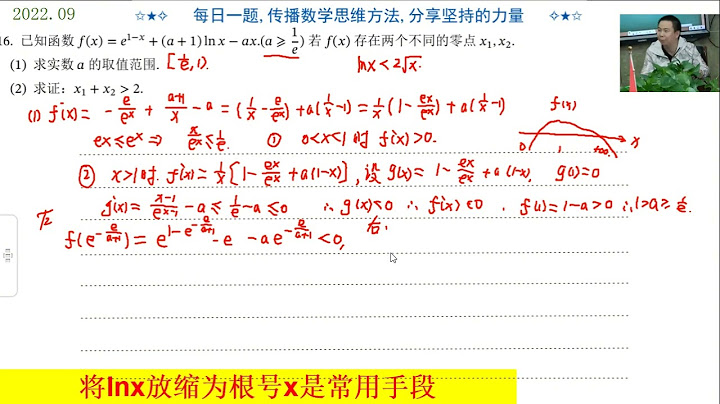 2022.09 ☆★☆ 每日一题,传播数学思维方法,分享坚持的力量 ☆★☆
16. 已知函数 f(x) = e^{1-x} + (a + 1) ln x − ax.(a ⩾ 1/e) 若 f(x) 存在两个不同的零点 x₁, x₂.
(1) 求实数 a 的取值范围. [1/e, 1). lnx < 2√x.
(2) 求证: x₁ + x₂ > 2.
(1) f'(x) = −e/e^x + (a+1)/x − a = (1/x − e/e^x) + a(1/x − 1) = 1/x (1 − ex/e^x) + a(1/x − 1)
f(x)
0 1 +∞ x
ex ≤ e^x ⇒ x/e^x ≤ 1/e. ① 0<x<1 时 f'(x)>0.
② x>1时. f'(x) = 1/x [1 − ex/e^x + a(1−x)], 设 g(x) = 1 − ex/e^x + a(1−x), g(1) = 0
g'(x) = (x−1)/e^{x−1} − a ≤ 1/e − a ≤ 0 ∴ g(x) ≤ 0 ∴ f'(x) < 0 . f(1) = 1−a > 0 ∴ 1 > a ≥ 1/e.
左 f(e^{−e/(a+1)}) = e^{1−e^{−e/(a+1)}} − e − ae^{−e/(a+1)} < 0, 右.
将lnx放缩为根号x是常用手段